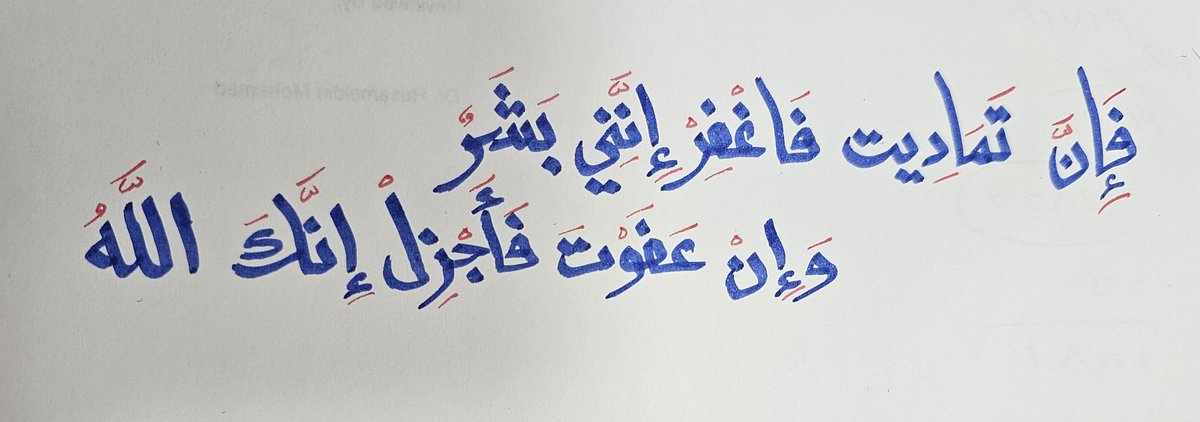 فَإِنَّ تَمَاَدِيت فَاغْفِرْ إِنَّنِي بَشَرٌ
وَإِنْ عَفَوْتَ فَأَجْزِلْ إِنَّكَ اللَّهُ